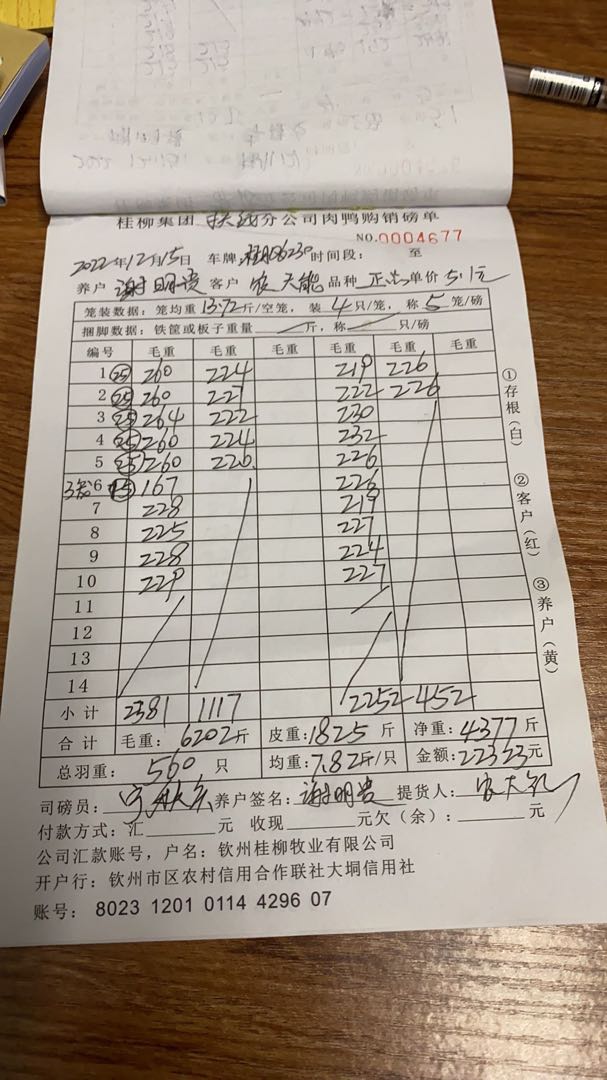 桂柳集团 扶绥分公司肉鸭购销磅单
NO.0004677
2022年12月15日 车牌:桂 时间段: 至
养户 谢明贵 客户 农天能 品种 正 单价 5.1元
笼装数据:笼均重 13.72 斤/空笼,装 4 只/笼,称 5 笼/磅
捆脚数据:铁筐或板子重量 斤,称 只/磅
编号 毛重 毛重 毛重 毛重 毛重 毛重
1 (25) 260 224 219 226
2 (25) 260 227 222 226
3 (25) 264 222 230
4 (25) 260 224 232
5 (25) 260 220 226
6 (15) 167 226
7 228 219
8 225 227
9 228 224
10 229 227
11
12
13
14
小计 2381 1117 2252 452
合计 毛重:6202斤 皮重:1825 斤 净重:4377 斤
总羽重: 560 只 均重:7.82斤/只 金额:22323元
司磅员: 养户签名:谢明贵 提货人:
付款方式:汇 元 收现 元欠(余): 元
公司汇款账号,户名:钦州桂柳牧业有限公司
开户行:钦州市区农村信用合作联社大垌信用社
账号: 8023 1201 0114 4296 07
①存根(白)
②客户(红)
③养户(黄)